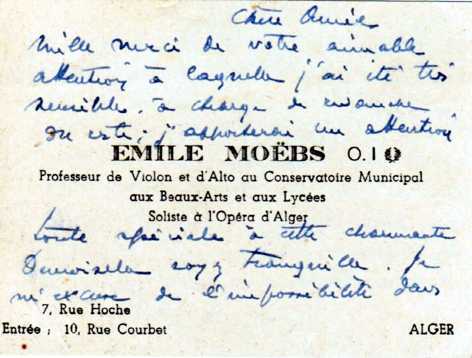 Chère Amie
Mille merci de votre aimable
attention à laquelle j'ai été très
sensible. à charge de revanche
du reste; j'apporterai un attention
EMILE MOËBS O.I
Professeur de Violon et d'Alto au Conservatoire Municipal
aux Beaux-Arts et aux Lycées
Soliste à l'Opéra d'Alger
toute spéciale à cette charmante
Demoiselle soyez tranquille. Je
m'excuse de l'impossibilité dans
7, Rue Hoche
Entrée : 10, Rue Courbet ALGER